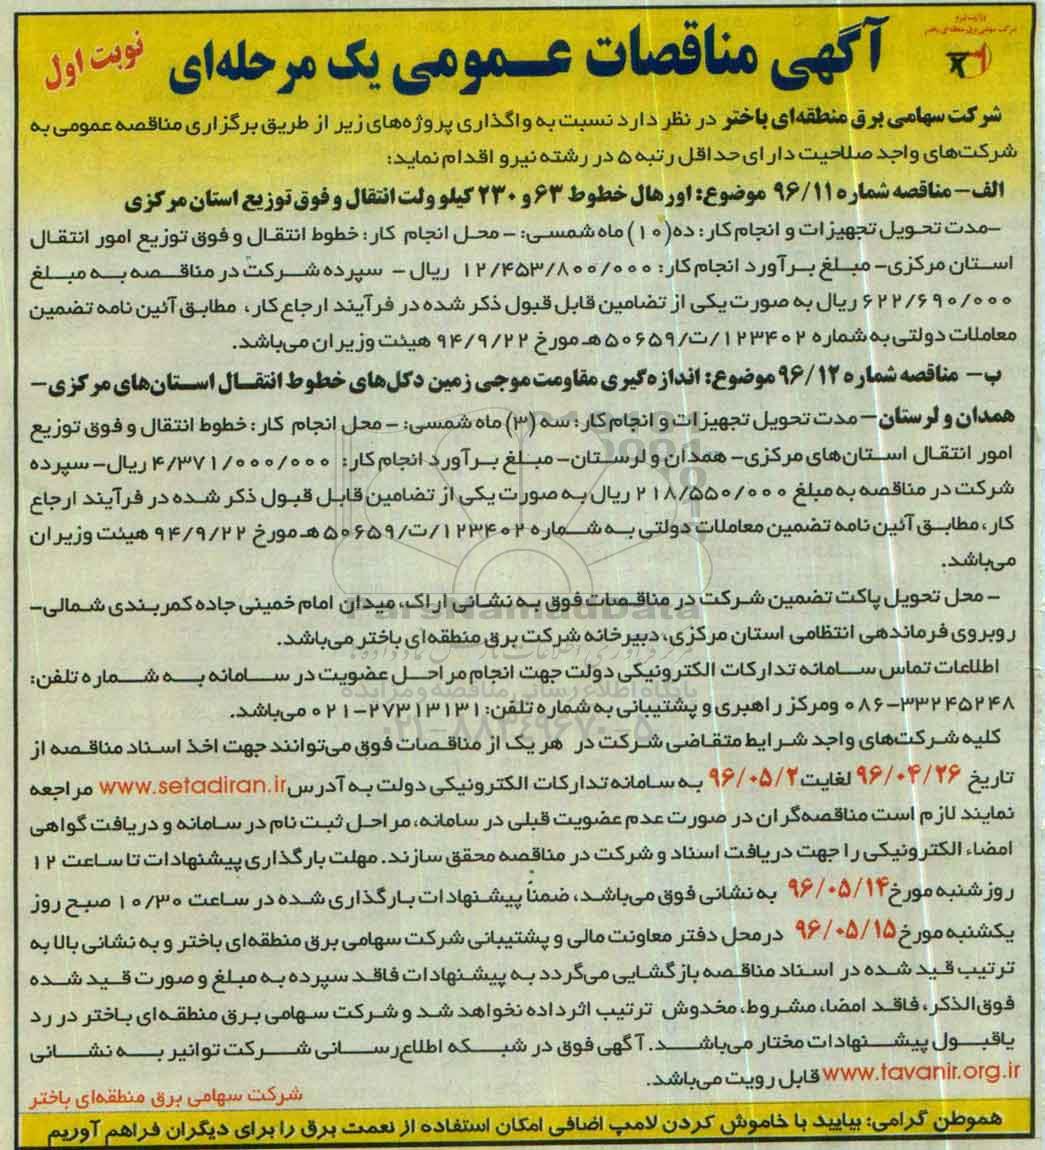 وزارت نیرو
شرکت سهامی برق منطقه‌ای باختر
آگهی مناقصات عمومی یک مرحله‌ای
نوبت اول
شرکت سهامی برق منطقه‌ای باختر در نظر دارد نسبت به واگذاری پروژه‌های زیر از طریق برگزاری مناقصه عمومی به
شرکت‌های واجد صلاحیت دارای حداقل رتبه ۵ در رشته نیرو اقدام نماید:
الف- مناقصه شماره ۹۶/۱۱ موضوع: اورهال خطوط ۶۳ و ۲۳۰ کیلوولت انتقال و فوق توزیع استان مرکزی
-مدت تحویل تجهیزات و انجام کار: ده(۱۰) ماه شمسی: - محل انجام کار: خطوط انتقال و فوق توزیع امور انتقال
استان مرکزی- مبلغ برآورد انجام کار: ۱۲/۴۵۳/۸۰۰/۰۰۰ ریال - سپرده شرکت در مناقصه به مبلغ
۶۲۲/۶۹۰/۰۰۰ ریال به صورت یکی از تضامین قابل قبول ذکر شده در فرآیند ارجاع کار، مطابق آئین نامه تضمین
معاملات دولتی به شماره ۱۲۳۴۰۲/ت/۵۰۶۵۹هـ مورخ ۹۴/۹/۲۲ هیئت وزیران می‌باشد.
ب- مناقصه شماره ۹۶/۱۲ موضوع: اندازه گیری مقاومت موجی زمین دکل‌های خطوط انتقال استان‌های مرکزی-
همدان و لرستان- مدت تحویل تجهیزات و انجام کار: سه (۳) ماه شمسی: - محل انجام کار: خطوط انتقال و فوق توزیع
امور انتقال استان‌های مرکزی- همدان و لرستان- مبلغ برآورد انجام کار: ۴/۳۷۱/۰۰۰/۰۰۰ ریال- سپرده
شرکت در مناقصه به مبلغ ۲۱۸/۵۵۰/۰۰۰ ریال به صورت یکی از تضامین قابل قبول ذکر شده در فرآیند ارجاع
کار، مطابق آئین نامه تضمین معاملات دولتی به شماره ۱۲۳۴۰۲/ت/۵۰۶۵۹هـ مورخ ۹۴/۹/۲۲ هیئت وزیران
می‌باشد.
- محل تحویل پاکت تضمین شرکت در مناقصات فوق به نشانی اراک، میدان امام خمینی جاده کمربندی شمالی-
روبروی فرماندهی انتظامی استان مرکزی، دبیرخانه شرکت برق منطقه‌ای باختر می‌باشد.
اطلاعات تماس سامانه تدارکات الکترونیکی دولت جهت انجام مراحل عضویت در سامانه به شماره تلفن:
۰۸۶-۳۳۲۴۵۲۴۸ ومرکز راهبری و پشتیبانی به شماره تلفن: ۰۲۱-۲۷۳۱۳۱۳۱ می‌باشد.
کلیه شرکت‌های واجد شرایط متقاضی شرکت در هر یک از مناقصات فوق می‌توانند جهت اخذ اسناد مناقصه از
تاریخ ۹۶/۰۴/۲۶ لغایت ۹۶/۰۵/۲ به سامانه تدارکات الکترونیکی دولت به آدرس www.setadiran.ir مراجعه
نمایند لازم است مناقصه‌گران در صورت عدم عضویت قبلی در سامانه، مراحل ثبت نام در سامانه و دریافت گواهی
امضاء الکترونیکی را جهت دریافت اسناد و شرکت در مناقصه محقق سازند. مهلت بارگذاری پیشنهادات تا ساعت ۱۲
روز شنبه مورخ ۹۶/۰۵/۱۴ به نشانی فوق می‌باشد، ضمناً پیشنهادات بارگذاری شده در ساعت ۱۰/۳۰ صبح روز
یکشنبه مورخ ۹۶/۰۵/۱۵ درمحل دفتر معاونت مالی و پشتیبانی شرکت سهامی برق منطقه‌ای باختر و به نشانی بالا به
ترتیب قید شده در اسناد مناقصه بازگشایی می‌گردد به پیشنهادات فاقد سپرده به مبلغ و صورت قید شده
فوق‌الذکر، فاقد امضا، مشروط، مخدوش ترتیب اثر داده نخواهد شد و شرکت سهامی برق منطقه‌ای باختر در رد
یاقبول پیشنهادات مختار می‌باشد. آگهی فوق در شبکه اطلاع‌رسانی شرکت توانیر به نشانی
www.tavanir.org.ir قابل رویت می‌باشد.
شرکت سهامی برق منطقه‌ای باختر
هموطن گرامی: بیایید با خاموش کردن لامپ اضافی امکان استفاده از نعمت برق را برای دیگران فراهم آوریم
ParsNamadData
پایگاه اطلاع رسانی مناقصه و مزایده